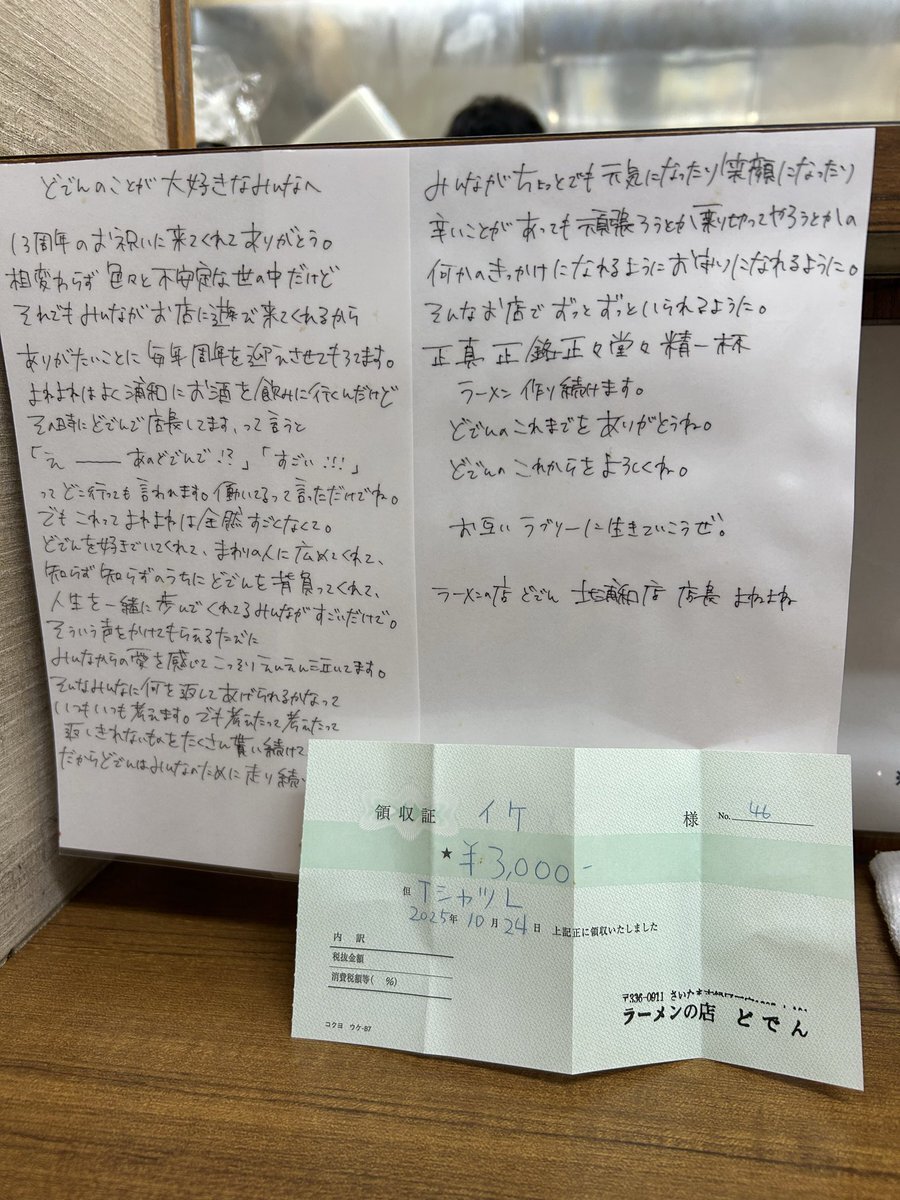 どでんのことが大好きなみんなへ
13周年のお祝いに来てくれてありがとう。
相変わらず色々と不安定な世の中だけど
それでもみんながお店に遊び来てくれるから
ありがたいことに毎年周年を迎えさせてもらてます。
よれよれはよく浦和にお酒を飲みに行くんだけど
その時にどでんで店長してます、って言うと
「え ―― あのどでんで!?」「すごい!!!」
ってどこ行っても言われます。働いてるって言っただけでね。
でもこれってよれよれは全然すごくなくて。
どでんを好きでいてくれて、まわりの人に広めてくれて、
知らず知らずのうちにどでんを背負ってくれて、
人生を一緒に歩んでくれてるみんながすごいだけで。
そういう声をかけてもらえるたびに
みんなからの愛を感じてこっそりえんえん泣いてます。
そんなみんなに何を返してあげられるかなって
いつもいつも考えます。でも考えたって考えたって
返しきれないものをたくさん貰い続けて
だからどでんはみんなのために走り続
みんながちょっとでも元気になったり笑顔になったり
辛いことがあっても頑張ろうとか乗り切ってやろうとかの
何かのきっかけになれるようにおまもりになれるように。
そんなお店でずっとずっといられるように。
正真正銘正々堂々精一杯
ラーメン作り続けます。
どでんのこれまでをありがとうね。
どでんのこれからをよろしくね。
お互いラブリーに生きていこうぜ。
ラーメンの店 どでん 北浦和店 店長 よれよれ
領収証 イケ 様 No. 46
★ ¥3,000-
但 TシャツL
2025年10月24日 上記正に領収いたしました
内訳
税抜金額
消費税額等( %)
〒336-0911 さいたま市
ラーメンの店 どでん
コクヨ ウケ-87